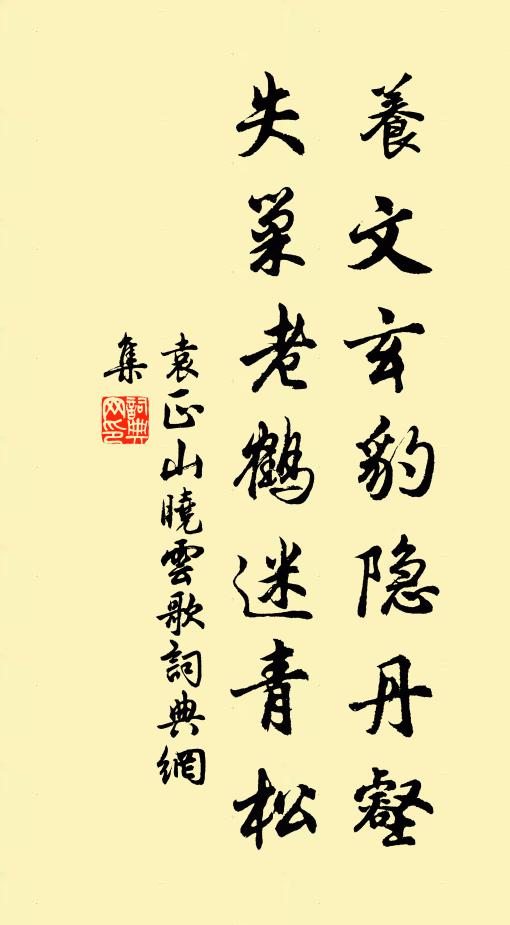 養文玄豹隐丹壑
失巢老鶴迷青松
袁正山曉雲歌詞典網
集
詞典
网印